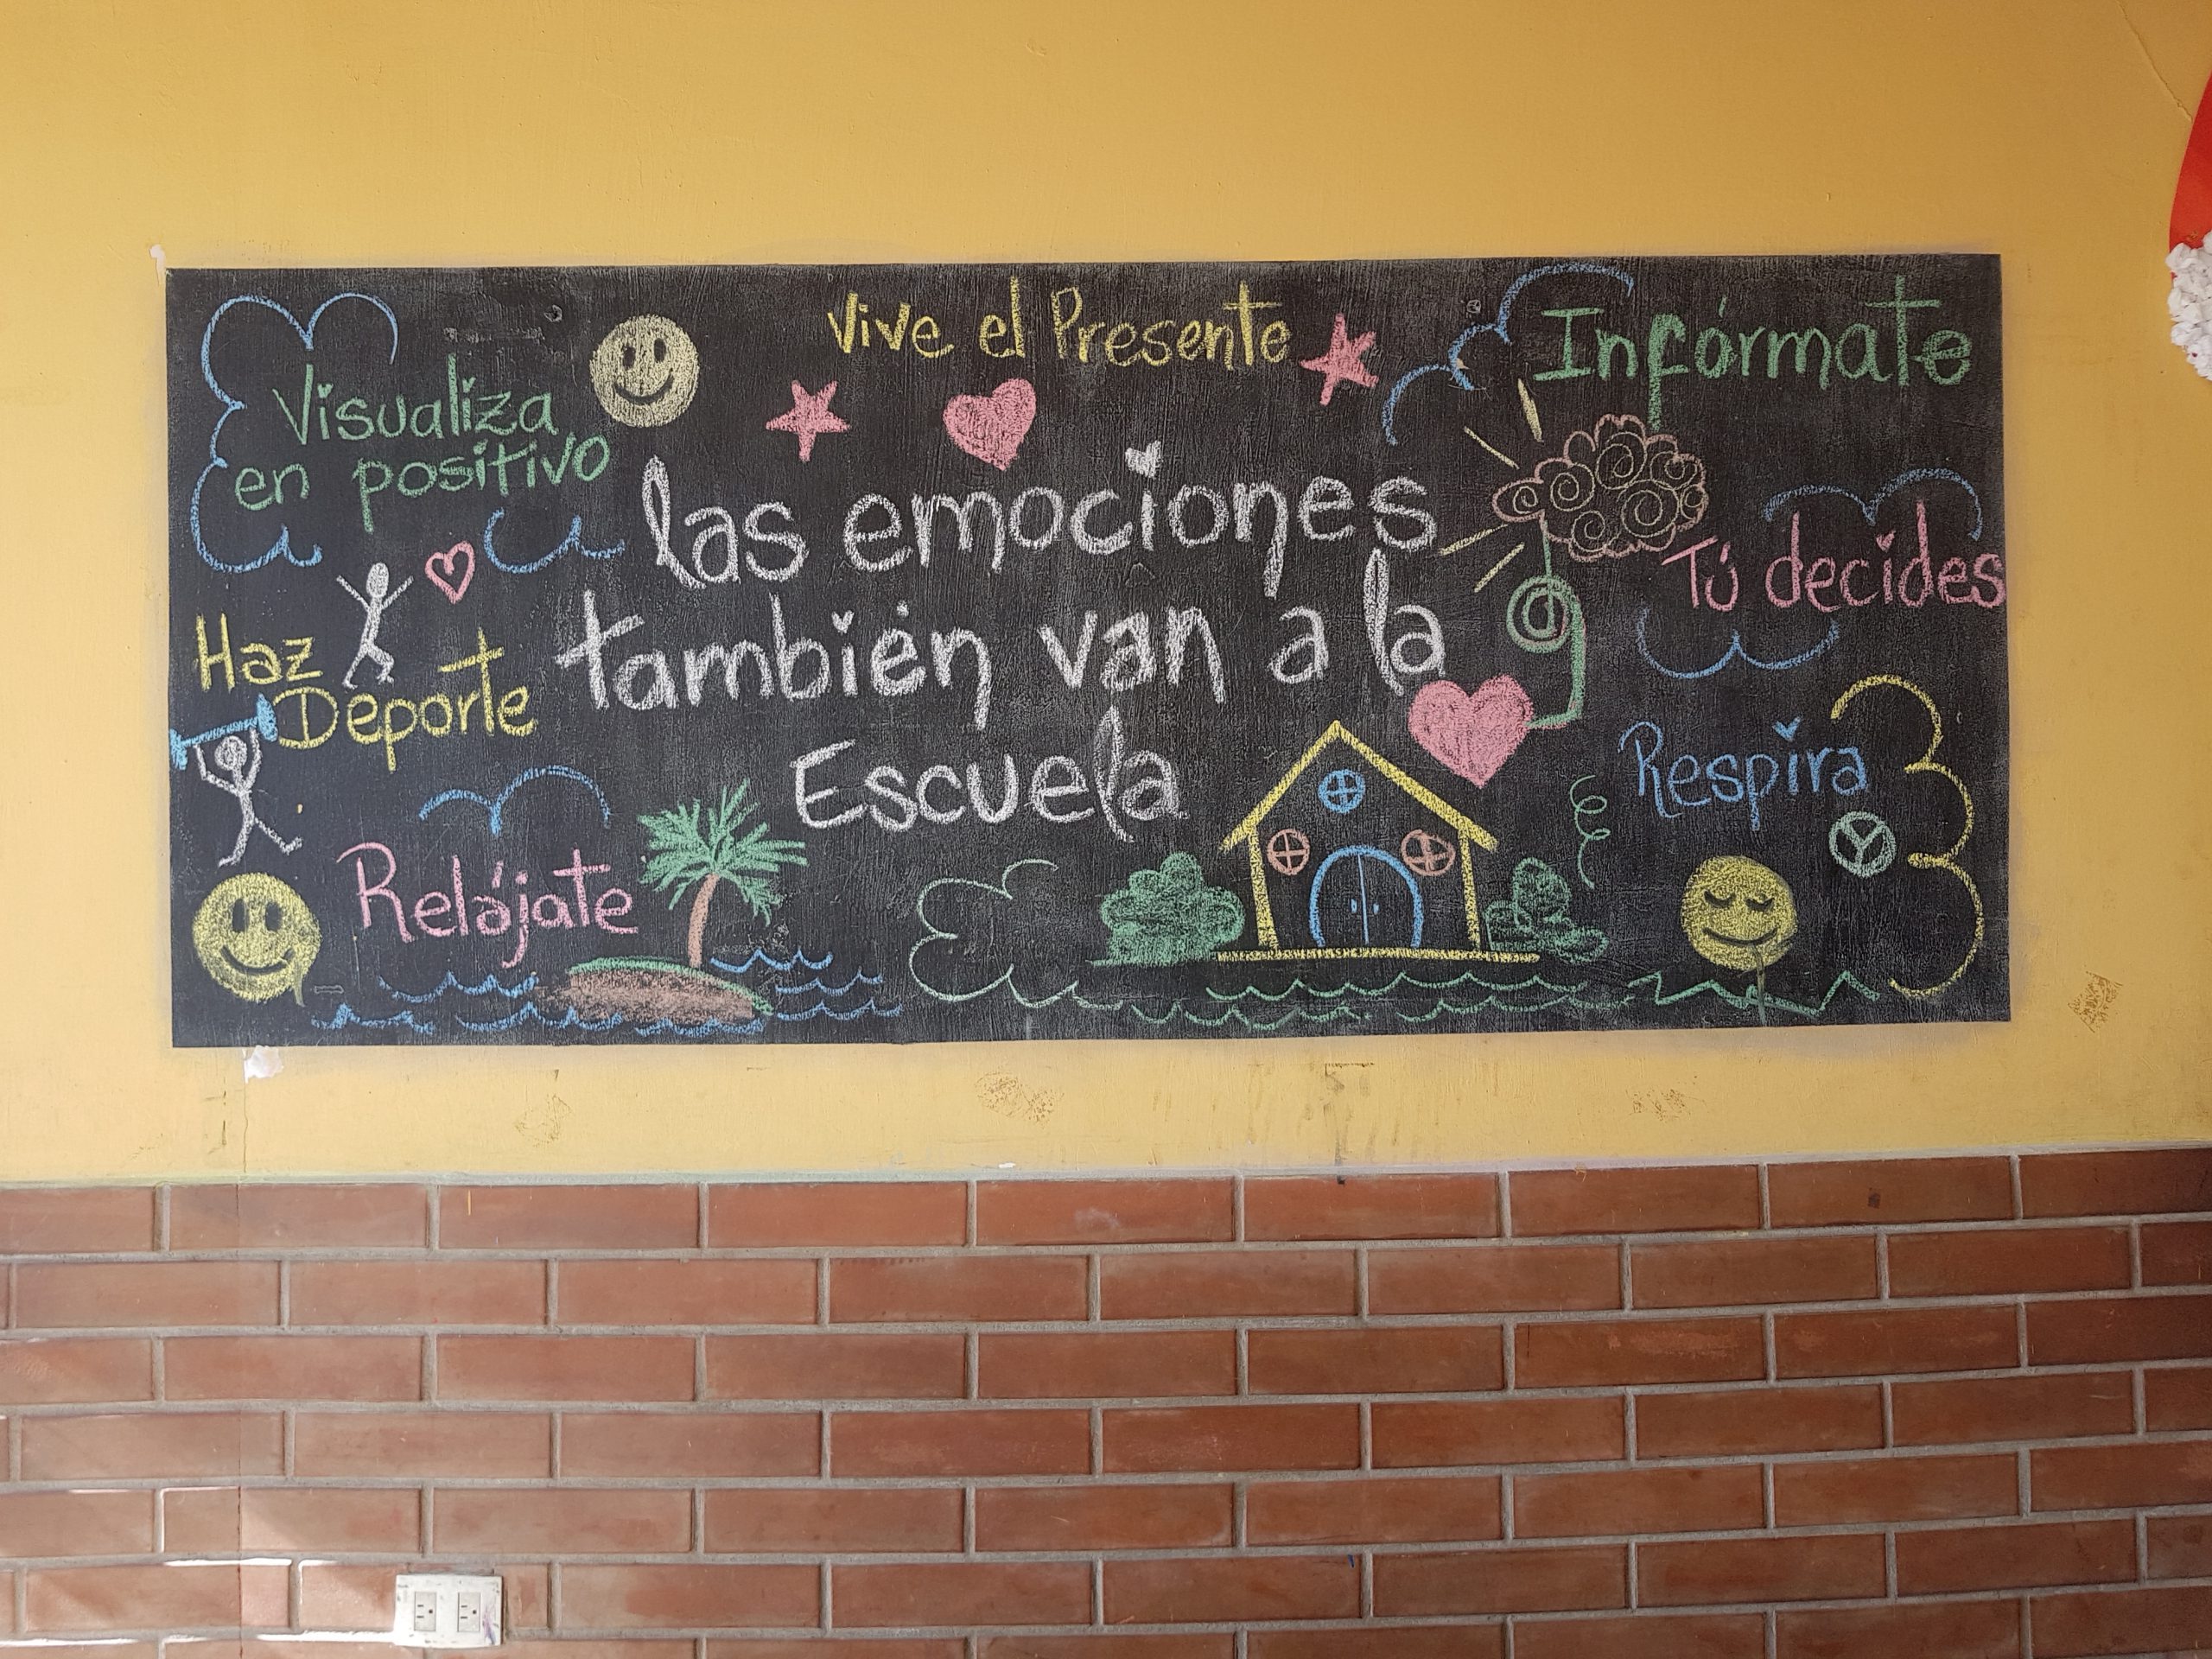 Vive el Presente
Infórmate
Visualiza
en positivo
las emociones
también van a la
Escuela
Tú decides
Haz
Deporte
Respira
Relájate